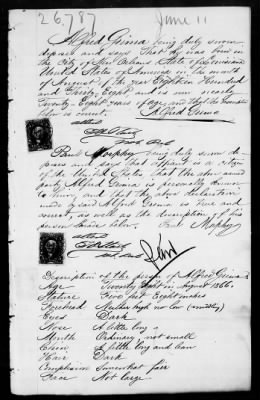 26,787
June 11
Alfred Grima being duly sworn
deposes and says that he was born in
the City of New Orleans State of Louisiana
United States of America in the month
of August of the year Eighteen Hundred
and Thirty Eight and is now nearly
Twenty-Eight years of age and that the
is correct.
Alfred Grima
attest
Paul Morphy being duly sworn
deposes and says that affiant is a citizen
of the United States that the above named
party Alfred Grima is personally known
to and that the above declaration
made by said Alfred Grima is true and
correct, as well as the description of his
person
Paul Morphy
attest
Description of the person of Alfred Grima
Age Twenty Eight in August 1866.
Stature Five feet Eight inches
Forehead Neither high nor low
Eyes Dark
Nose A little long
Mouth Ordinary, not small
Chin A little long and
Hair Dark
Complexion Somewhat fair
Face Not large